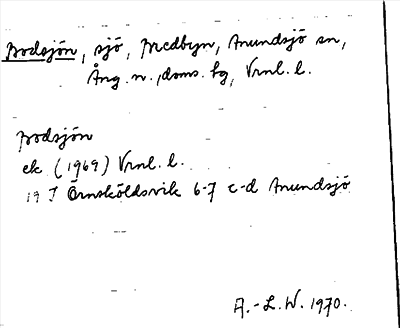 Bodsjön, sjö, Bredbyn, Anundsjö sn,
Ång. n., doms. hg, Vrnl. l.
Bodsjön
ek (1969) Vrnl. l.
19 I Örnsköldsvik 6-7 c-d Anundsjö
A.-L.W. 1970.